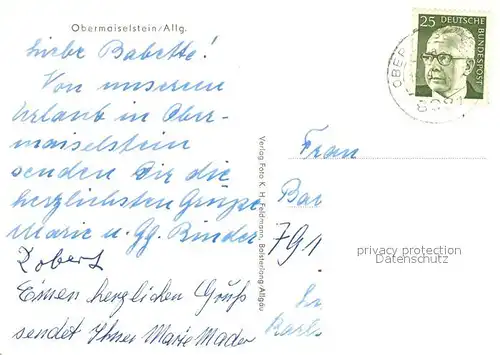 Obermaiselstein/Allg.
Liebe Babette!
Von unserem
Urlaub in Ober-
maiselstein
senden Dir die
herzlichsten Grüße
Marie u. Gg. Binder
Robert
Einen herzlichen Gruß
sendet Ihnen Marie Mader
Verlag Foto K. H. Feldmann, Bolsterlang/Allgäu
25 DEUTSCHE BUNDESPOST
OBER
Frau
Bar
791
Karls
privacy protection
Datenschutz